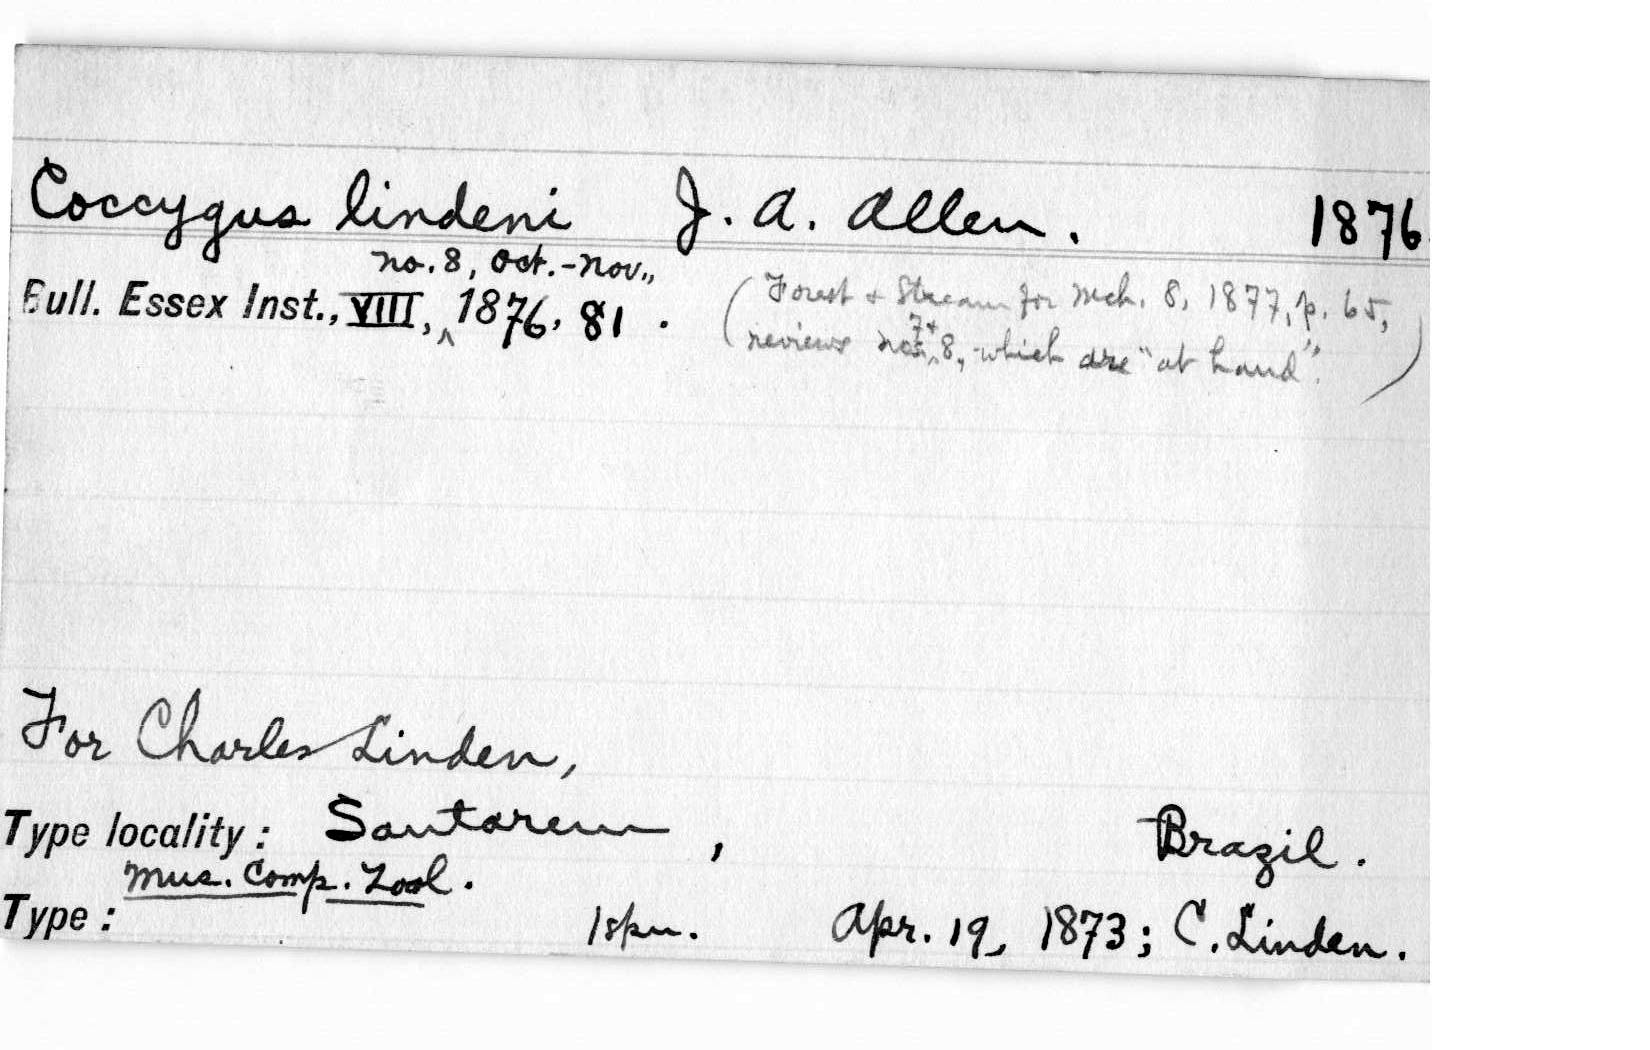 Coccygus lindeni J. A. Allen. 1876.
no. 8, Oct.-Nov.,
Bull. Essex Inst., VIII, ^ 1876, 81.
(Forest & Stream for Mch. 8, 1877, p. 65,
7+
reviews nos. ^ 8, which are "at hand".)
For Charles Linden,
Type locality: Santarem, Brazil.
Mus. Comp. Zool.
Type: 1 spm. Apr. 19, 1873; C. Linden.